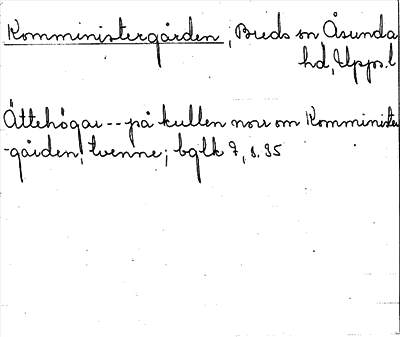 Komministergården, Breds sn Åsunda
hd, Upps. l
Ättehögar -- på kullen norr om Komminister
-gården, tvenne; bglk 7, s. 35